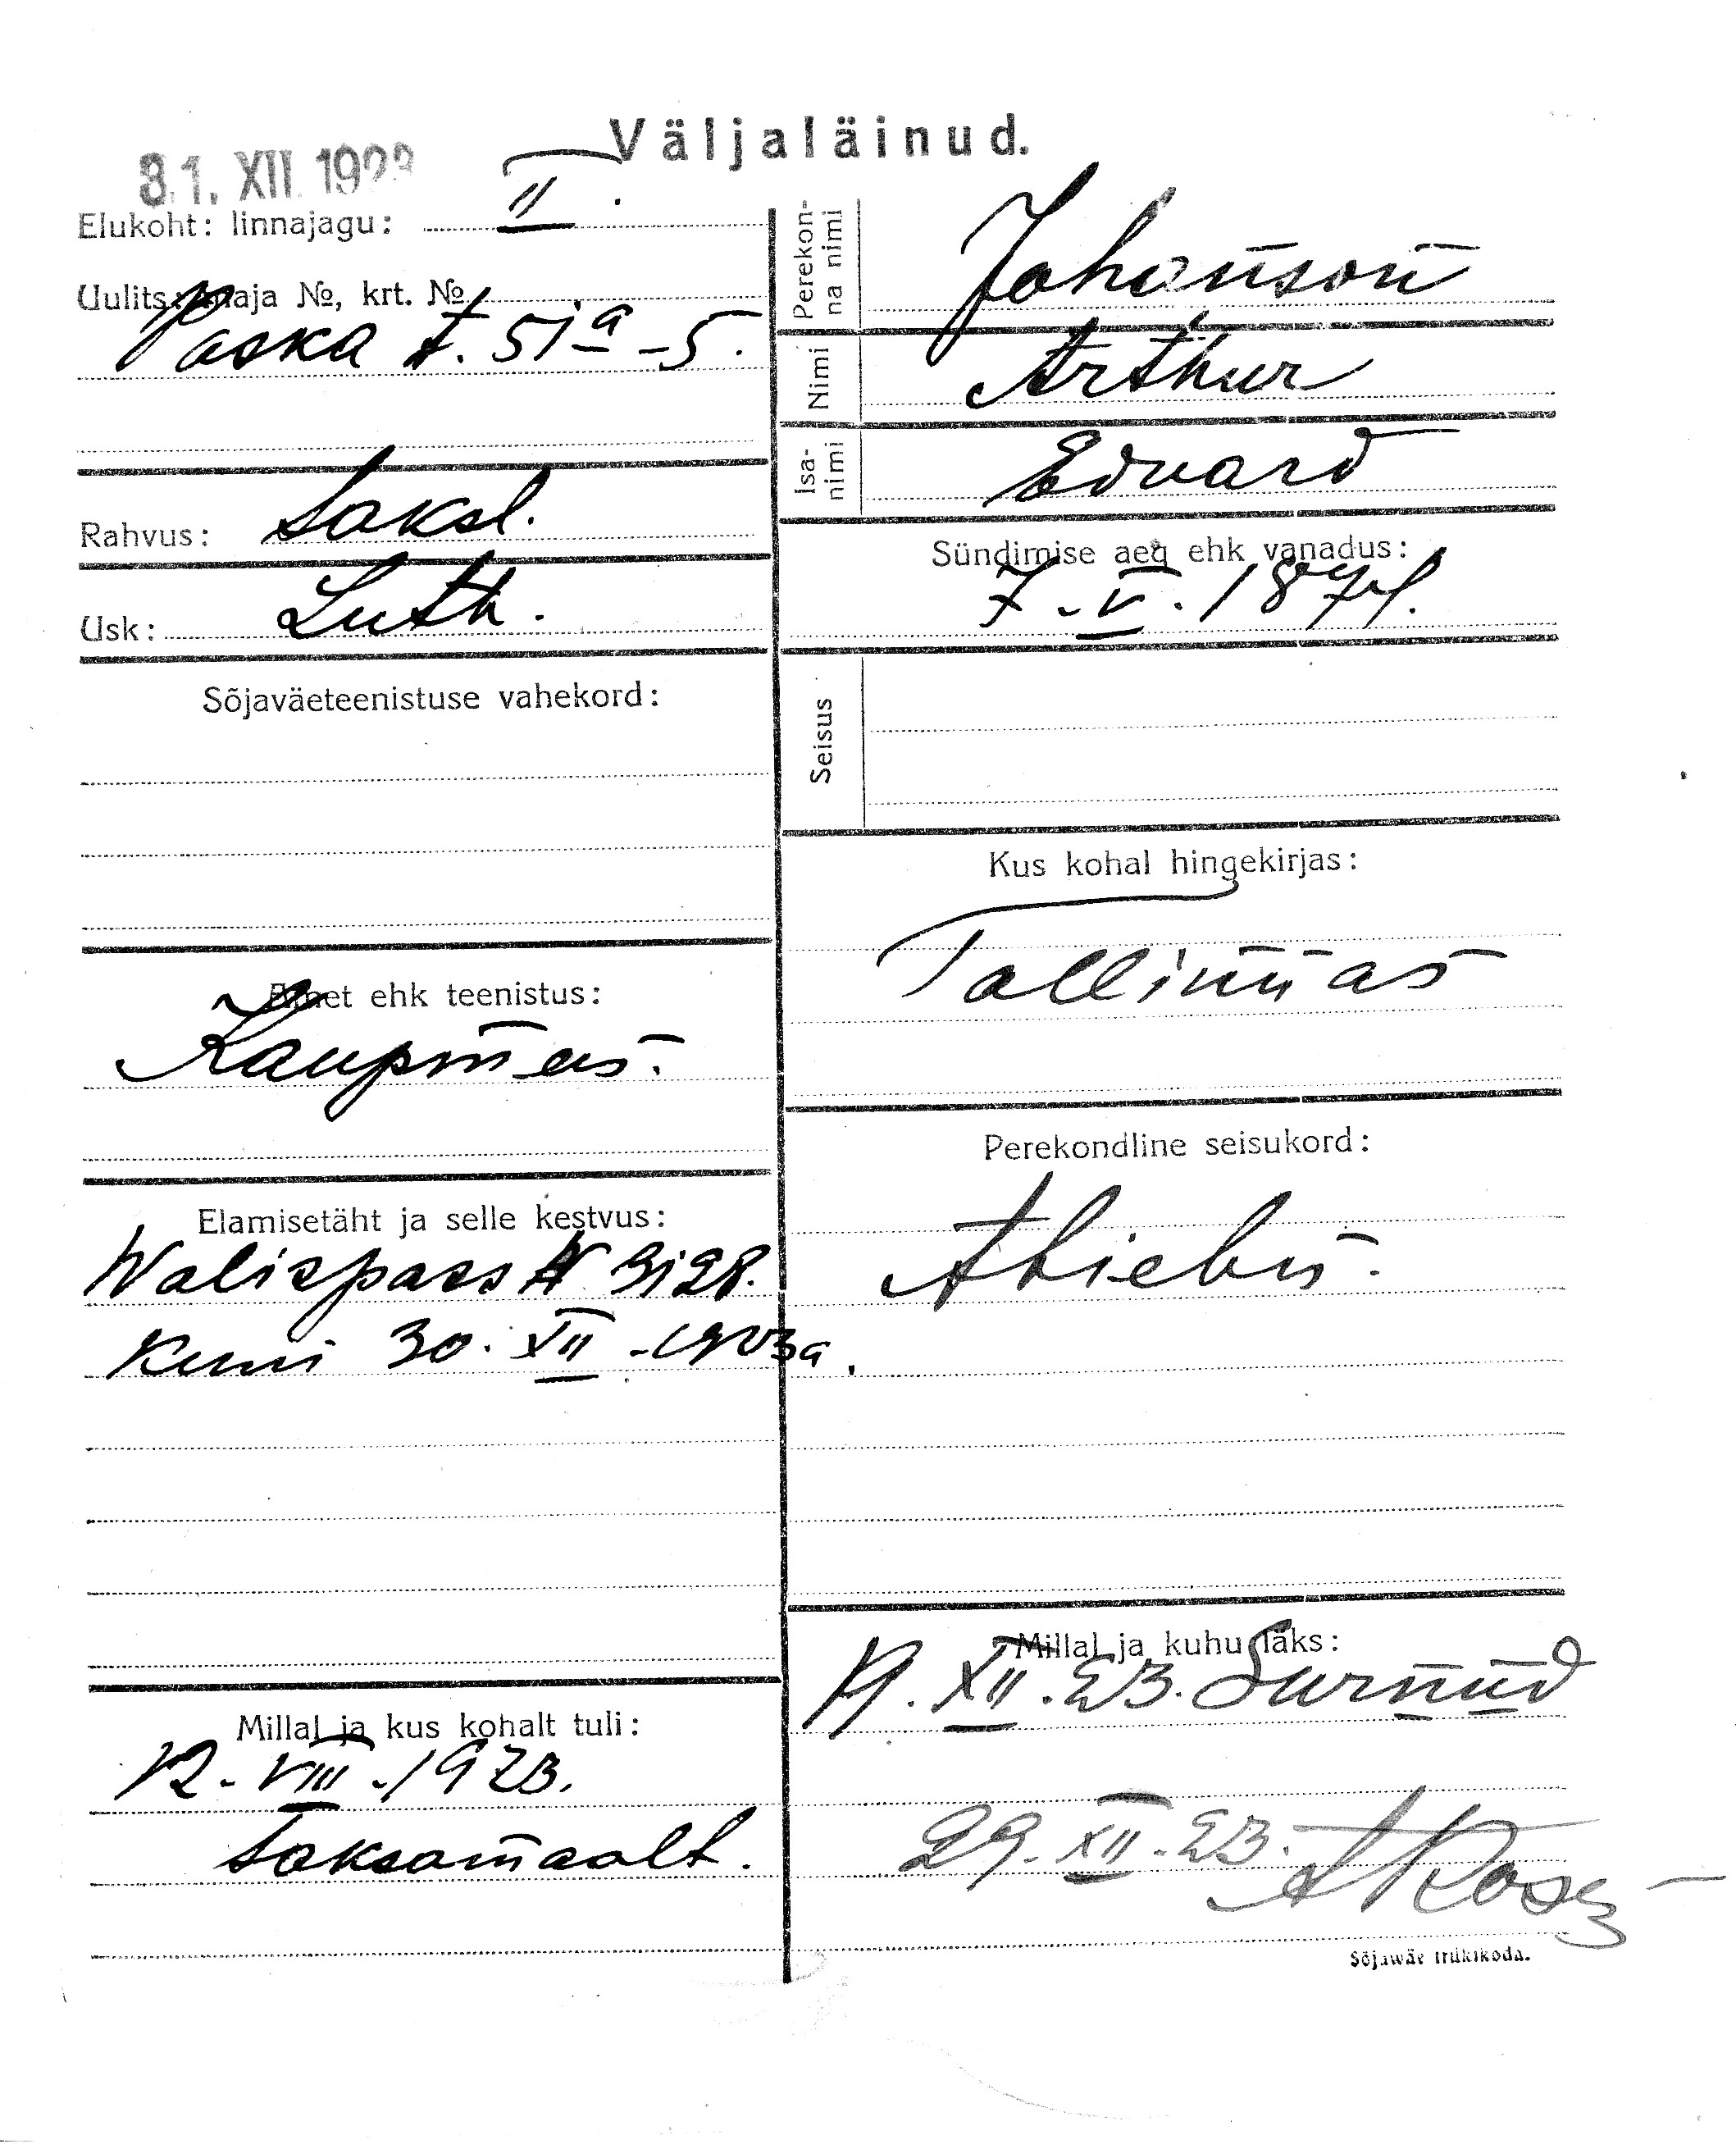 Väljaläinud.
31. XII 1923
Elukoht: linnajagu: II.
Uulits, maja №, krt. №
Poska t. 51a-5.
Rahvus: Saksl.
Usk: Luth.
Sõjaväeteenistuse vahekord:
Amet ehk teenistus:
Kaupmees.
Elamisetäht ja selle kestvus:
Walispass N 3128.
Kuni 30. XII -1923a.
Millal ja kus kohalt tuli:
12. VIII -1923.
Saksamaalt.
Perekonna nimi
Johanson
Nimi
Arthur
Isanimi
Edvard
Sündimise aeg ehk vanadus:
7. V. 1874.
Seisus
Kus kohal hingekirjas:
Tallinnas
Perekondline seisukord:
Abielus.
Millal ja kuhu läks:
19. XII. 23. Surnud
29. XII. 23.
Sõjawäe trükikoda.